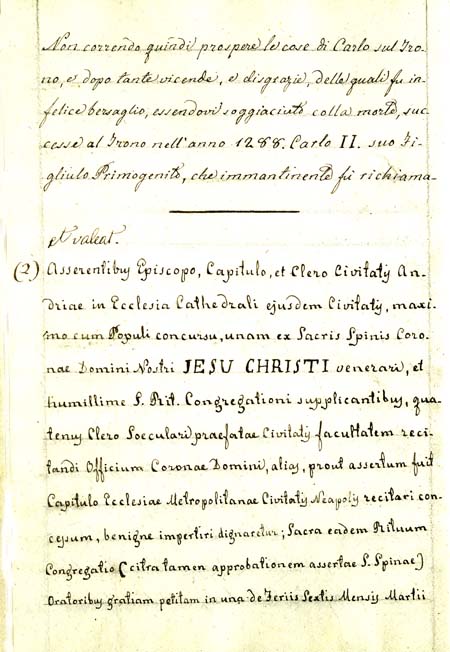 Non correndo quindi prospere le cose di Carlo sul Tro-
no, e dopo tante vicende, e disgrazie, delle quali fu in-
felice bersaglio, essendovi soggiaciuto colla morte, suc-
cesse al Trono nell'anno 1288. Carlo II. suo Fi-
gliulo Primogenito, che immantinente fù richiama-
et valeat.
(2) Asserentibus Episcopo, Capitulo, et Clero Civitatis An-
driae in Ecclesia Cathedrali ejusdem Civitatis, maxi-
mo cum Populi concursu, unam ex Sacris Spinis Coro-
nae Domini Nostri JESU CHRISTI venerari, et
humillime S. Rit. Congregationi supplicantibus, qua-
tenus Clero Soeculari praefatae Civitatis facultatem reci-
tandi Officium Coronae Domini, alias, prout assertum fuit
Capitulo Ecclesiae Metropolitanae Civitatis Neapolis recitari con-
cessum, benigne impertiri dignaretur; Sacra eadem Rituum
Congregatio (citra tamen approbationem assertae S. Spinae)
Oratoribus gratiam petitam in una de Feriis Sextis Mensis Martii